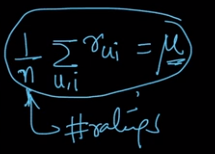 1/n Σ_{u,i} r_{ui} = μ
#ratings